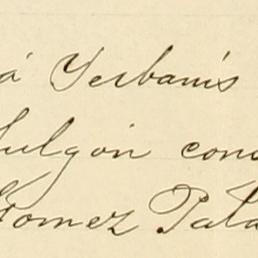 á Yerbanís
Julgón con
Gomez Pala